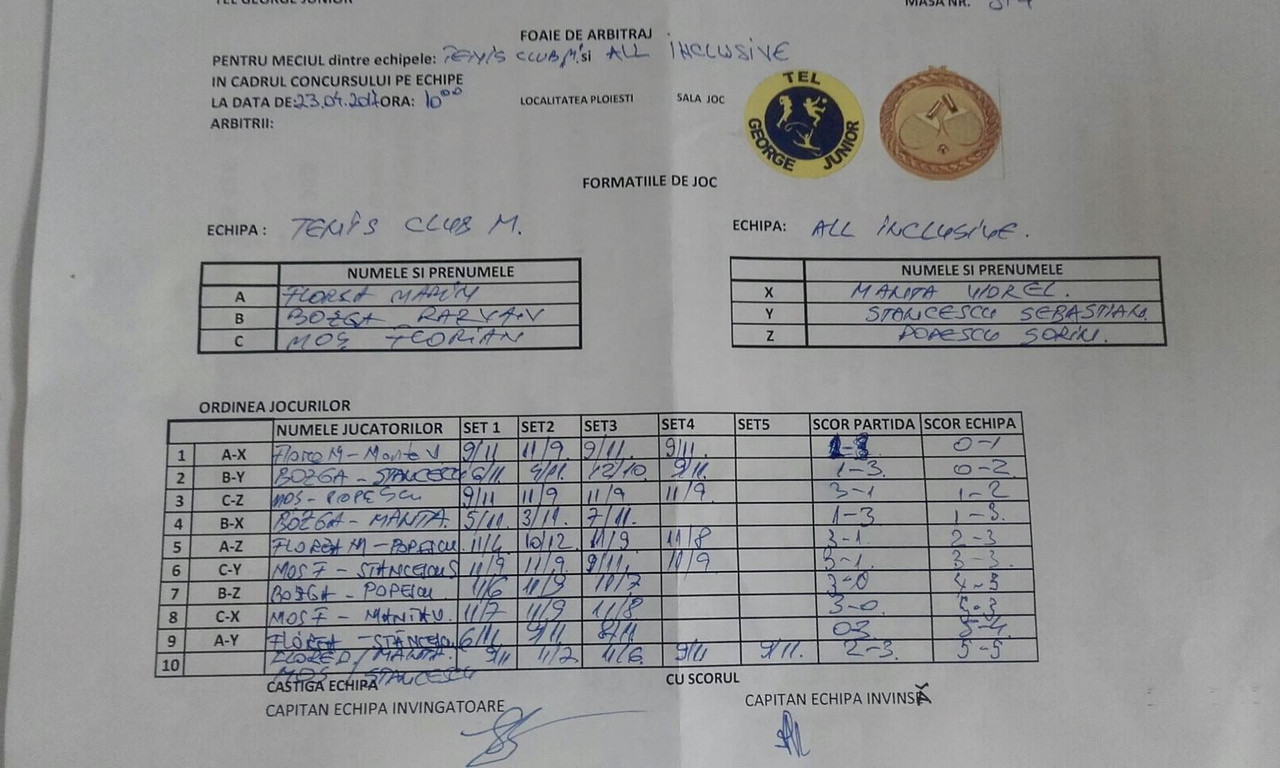 TEL GEORGE JUNIOR MASA NR. 3+4
FOAIE DE ARBITRAJ
PENTRU MECIUL dintre echipele: TENIS CLUB M. si ALL INCLUSIVE
IN CADRUL CONCURSULUI PE ECHIPE
LA DATA DE: 23.04.2017 ORA: 10⁰⁰ LOCALITATEA PLOIESTI SALA JOC
ARBITRII:
TEL GEORGE JUNIOR
FORMATIILE DE JOC
ECHIPA : TENIS CLUB M. ECHIPA: ALL INCLUSIVE.
NUMELE SI PRENUMELE NUMELE SI PRENUMELE
A FLOREA MARIN X MANTA VIOREL.
B BOZGA RAZVAN Y STANCESCU SEBASTIAN.
C MOȘ FLORIAN Z POPESCU SORIN.
ORDINEA JOCURILOR
NUMELE JUCATORILOR SET 1 SET2 SET3 SET4 SET5 SCOR PARTIDA SCOR ECHIPA
1 A-X Florea M - Manta V 9/11 11/9 9/11. 9/11. 1-3 0-1
2 B-Y BOZGA - STANCESCU 6/11 9/11. 12/10. 9/11. 1-3. 0-2
3 C-Z MOS - POPESCU 9/11 11/9 11/9 11/9 3-1 1-2
4 B-X BOZGA - MANTA. 5/11. 3/11. 7/11. 1-3 1-3.
5 A-Z FLOREA M - POPESCU 11/4 10/12. 11/9 11/8 3-1 2-3
6 C-Y MOS F - STANCESCU S 11/9 11/9 9/11. 11/9 3-1. 3-3.
7 B-Z BOZGA - POPESCU 11/6 11/3 11/7 3-0 4-3
8 C-X MOS F - MANTA V. 11/7 11/9 11/8 3-0. 5-3
9 A-Y FLOREA - STANCESCU 6/11 9/11 8/11 0-3 5-4
10 FLOREA / MANTA. 9/11 11/7 11/6 9/11 9/11. 2-3. 5-5
MOS / STANCESCU
CASTIGA ECHIPA CU SCORUL
CAPITAN ECHIPA INVINGATOARE CAPITAN ECHIPA INVINSĂ